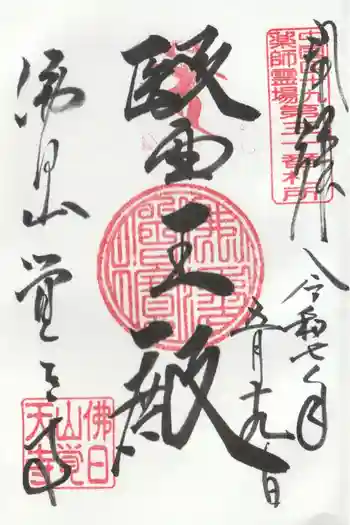 奉拝
中国四十九
薬師霊場第三一番札所
令和七年
五月十九日
醫王殿
佛日山
覚天寺
佛日
山覚
天寺